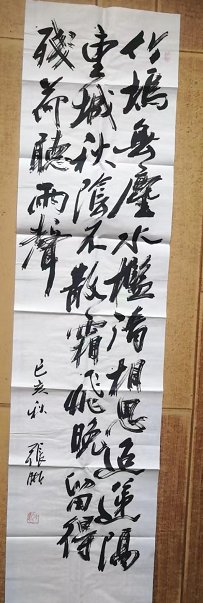 竹塢無塵水檻清相思迢遞隔
重城秋陰不散霜飛晚留得
殘荷聽雨聲
己亥秋 張